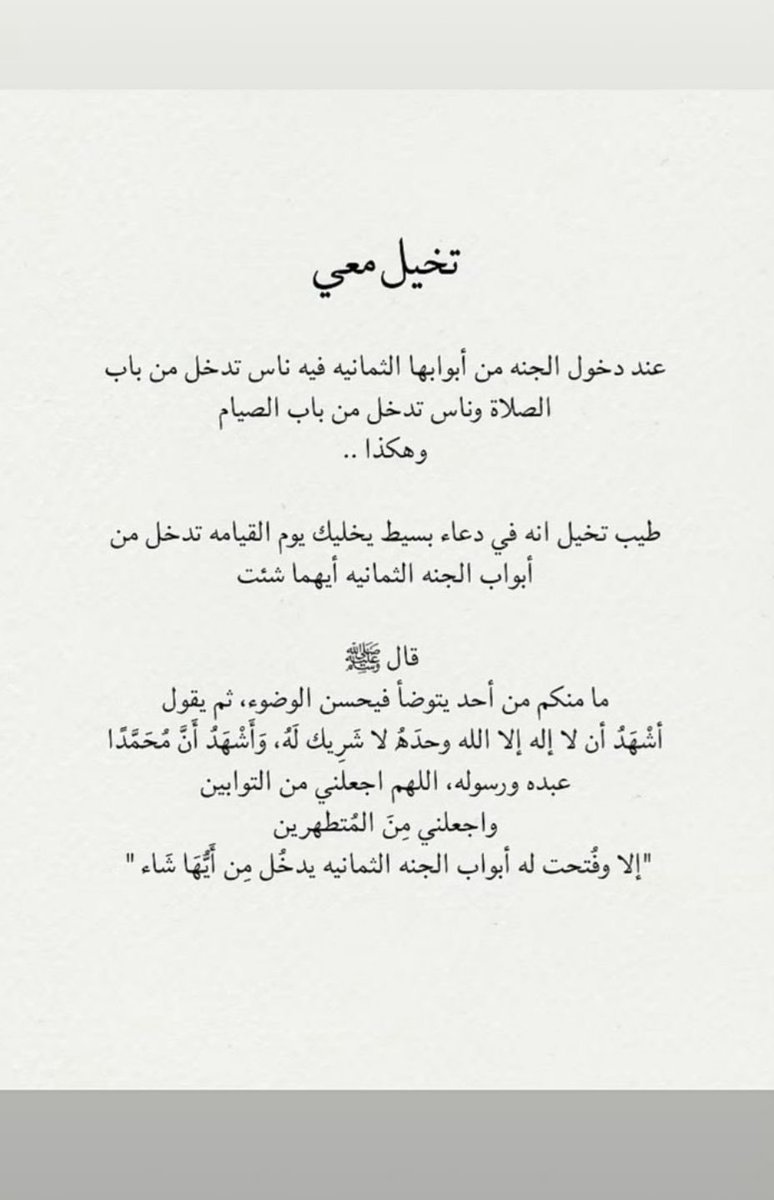 تخيل معي
عند دخول الجنه من أبوابها الثمانيه فيه ناس تدخل من باب
الصلاة وناس تدخل من باب الصيام
وهكذا ..
طيب تخيل انه في دعاء بسيط يخليك يوم القيامه تدخل من
أبواب الجنه الثمانيه أيهما شئت
قال ﷺ
ما منكم من أحد يتوضأ فيحسن الوضوء، ثم يقول
أشْهَدُ أن لا إله إلا الله وحدَهُ لا شَرِيك لَهُ، وَأَشْهَدُ أَنَّ مُحَمَّدًا
عبده ورسوله، اللهم اجعلني من التوابين
واجعلني مِنَ المُتطهرين
"إلا وفُتحت له أبواب الجنه الثمانيه يدخُل مِن أَيُّهَا شَاء "